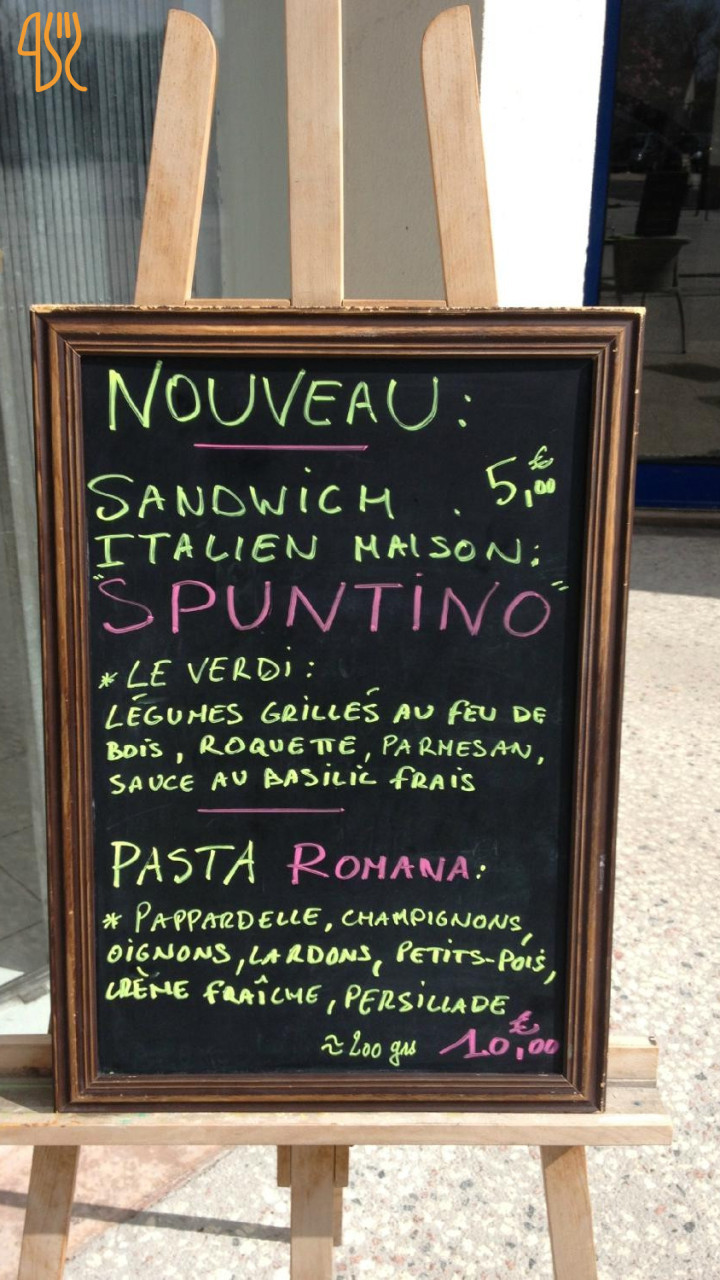 NOUVEAU :
SANDWICH . 5,00 €
ITALIEN MAISON :
"SPUNTINO"
* LE VERDI :
LÉGUMES GRILLÉS AU FEU DE
BOIS, ROQUETTE, PARMESAN,
SAUCE AU BASILIC FRAIS
PASTA ROMANA :
* PAPPARDELLE, CHAMPIGNONS,
OIGNONS, LARDONS, PETITS-POIS,
CRÈME FRAÎCHE, PERSILLADE
≈ 200 grs 10,00 €